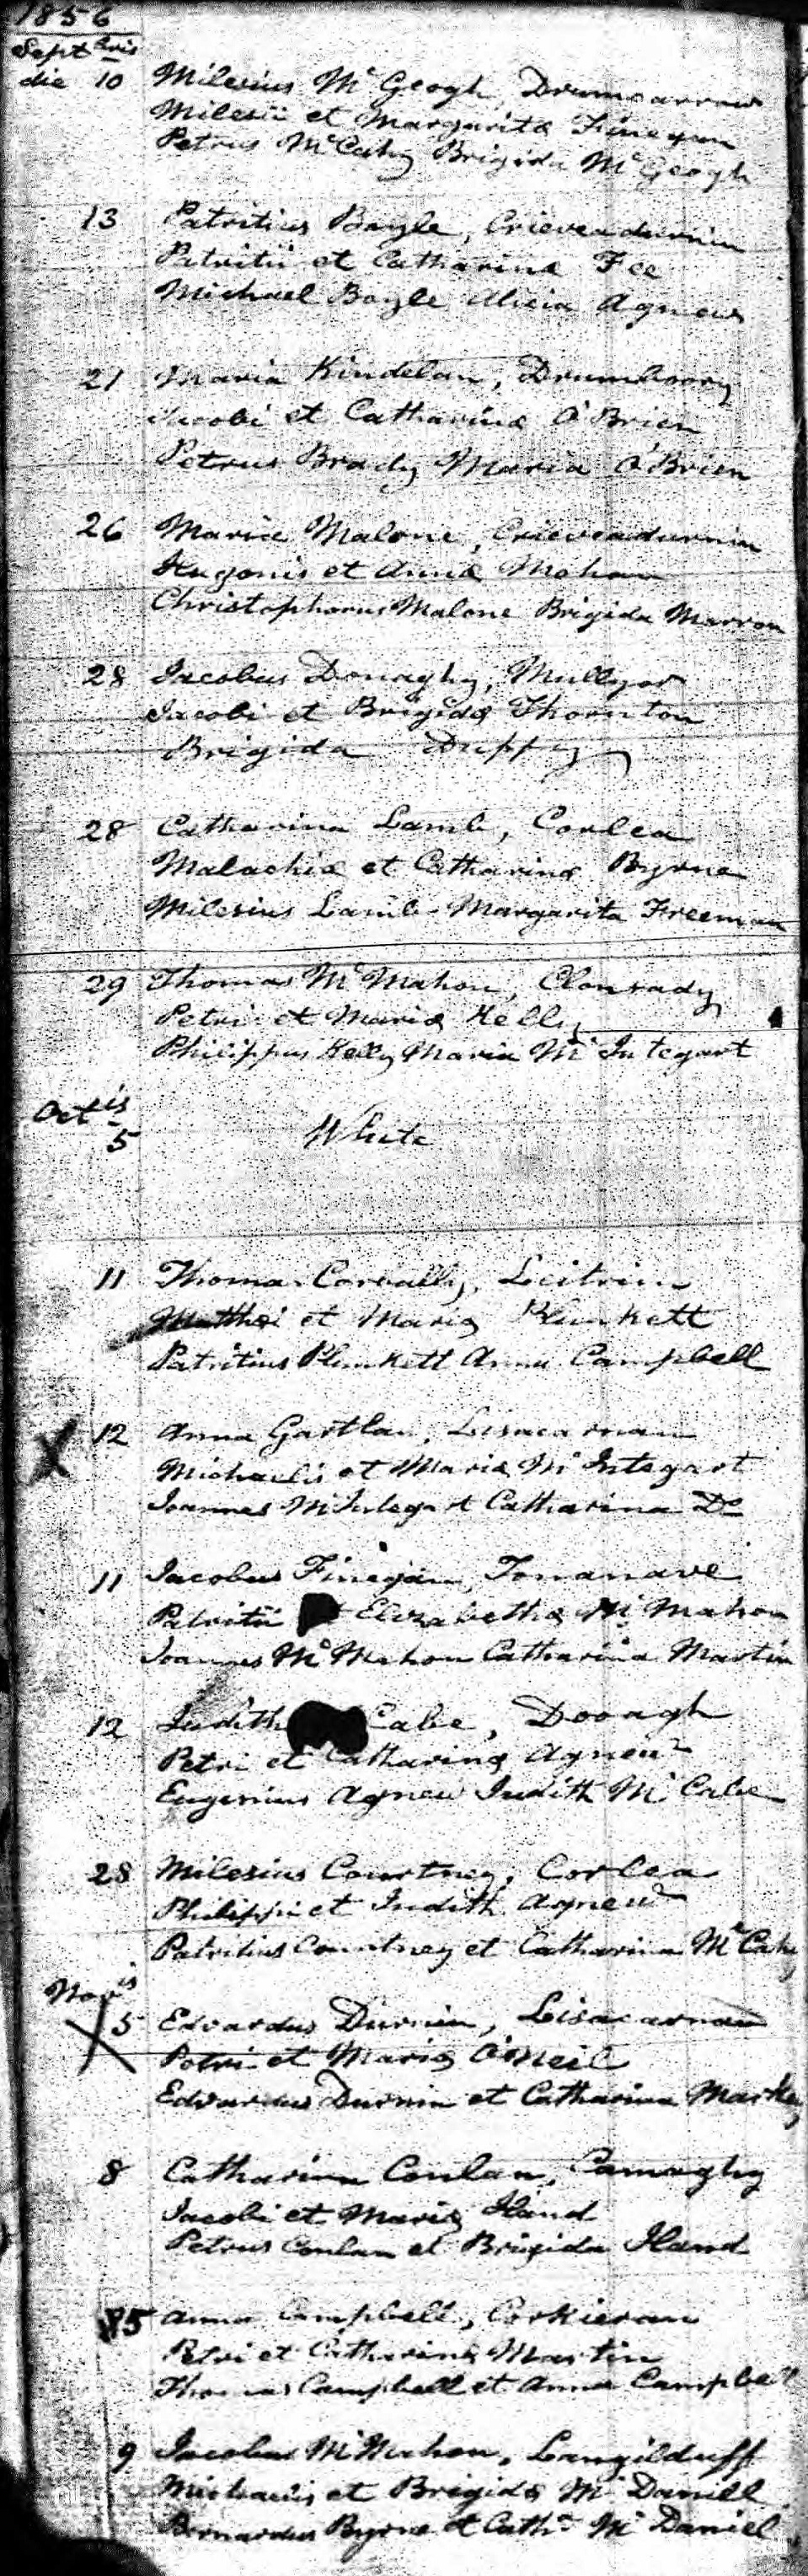 1856
Septbris
die 10 Milesius McGeogh, Drumcarrow
Milesii et Margaritæ Finegan
Petrus McCahy Brigida McGeogh
13 Patritius Boyle, Crieveadurnin
Patritii et Catharinæ Fee
Michael Boyle Alicia Agnew
21 Maria Kindelan,
Jacobi et Catharinæ O'Brien
Petrus Brady Maria O'Brien
26 Maria Malone, Crieveadurnin
Hugonis et Annæ Mohan
Christophorus Malone Brigida Marron
28 Jacobus Donaghy, Mullyor
Jacobi et Brigidæ Thornton
Brigida Duffy
28 Catharina Lamb, Corlea
Malachiæ et Catharinæ Byrne
Milesius Lamb Margarita Freeman
29 Thomas McMahon, Clonrady
Petri et Mariæ Kelly
Philippus Kelly Maria McIntegart
Octis
5 White
11 Thomas Corbally, Leitrim
Matthei et Mariæ Plunkett
Patritius Plunkett Anna Campbell
X 12 Anna Gartlan, Lisacarnan
Michaelis et Mariæ McIntegart
Joannes McIntegart Catharina Do
11 Jacobus Finegan, Tonanave
Patritii Elizabethæ McMahon
Joannes McMahon Catharina Martin
12 Judith Cabe, Dooagh
Petri et Catharinæ Agnew
Eugenius Agnew Judith McCabe
28 Milesius Courtney, Corlea
Philippi et Judith Agnew
Patritius Courtney et Catharina McCahy
Novis
X 5 Edvardus Durnin, Lisacarnan
Petri et Mariæ O'Neil
Edvardus Durnin et Catharina Markey
8 Catharina Conlan, Camaghy
Jacobi et Mariæ Hand
Petrus Conlan et Brigida Hand
5 Anna Campbell, Corkieran
Petri et Catharinæ Martin
Thomas Campbell et Anna Campbell
9 Jacobus McMahon, Laragilduff
Michaelis et Brigidæ McDaniell
Bernardus Byrne et Cathn McDaniel